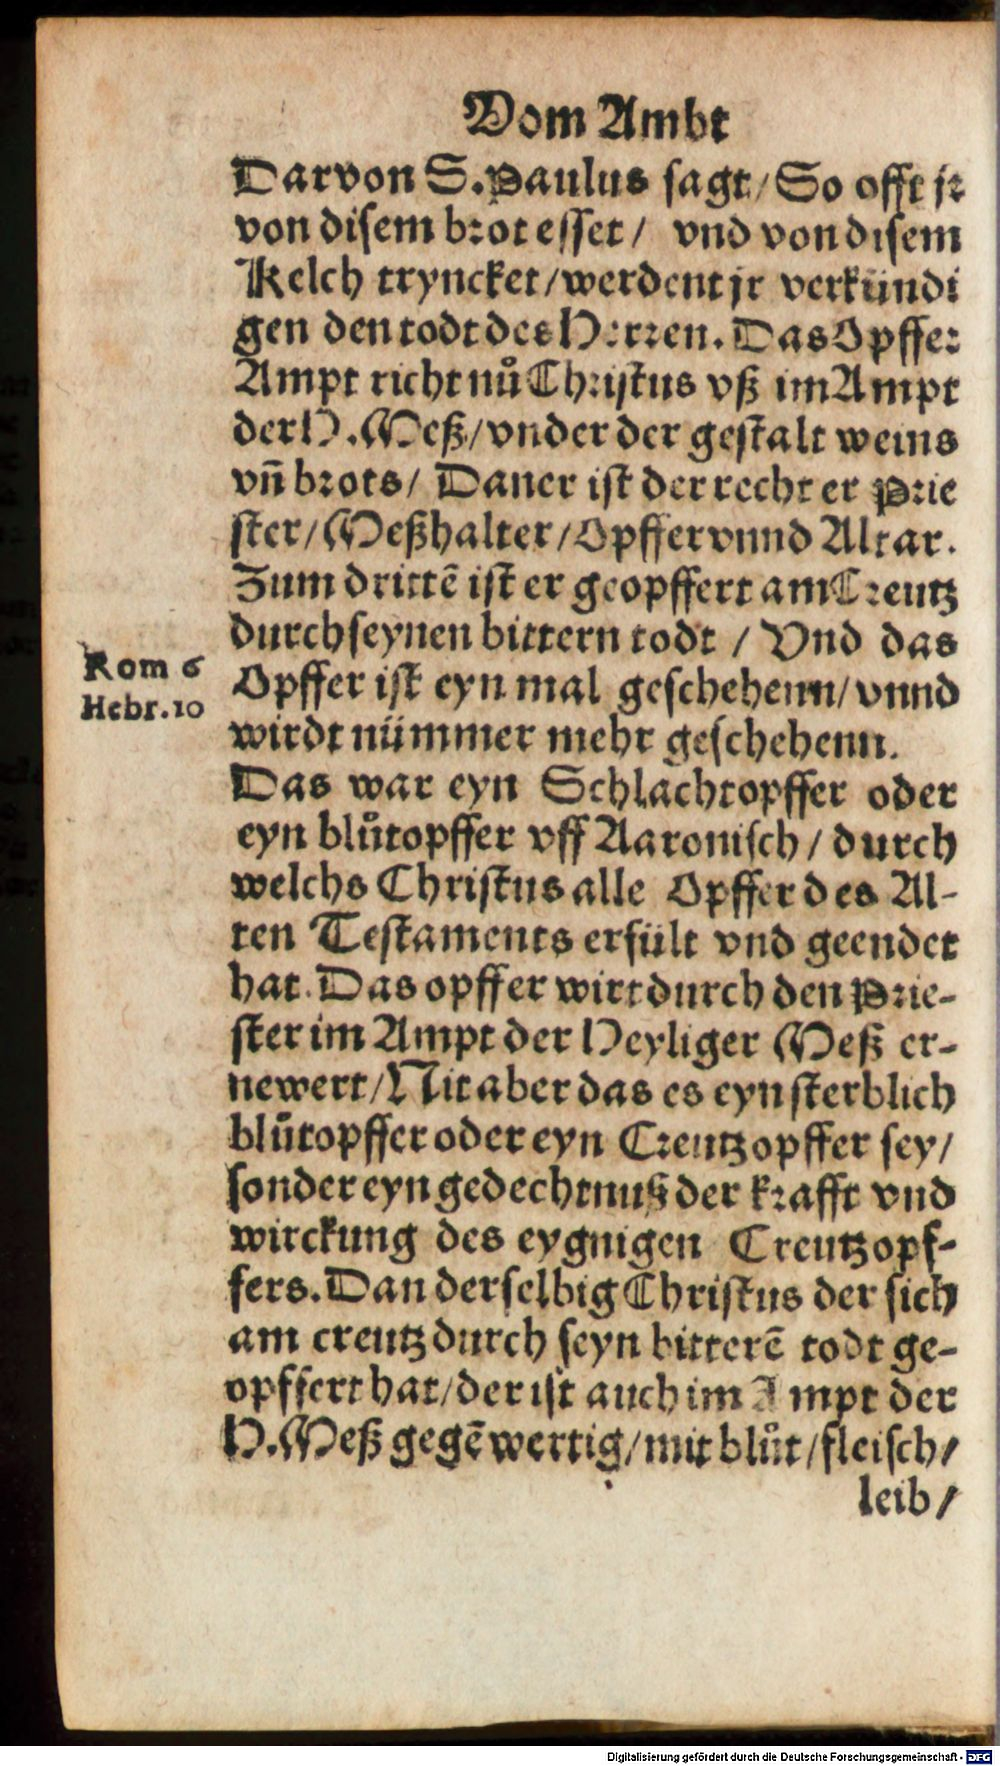 Vom Ambt
Darvon S. Paulus sagt / So offt jr
von disem brot esset / vnd von disem
Kelch tryncket / werdent jr verkündi
gen den todt des Herren. Das Opffer
Ampt richt nů Christus vß im Ampt
der H. Meß / vnder der gestalt weins
vn̄ brots / Dan er ist der recht er Prie
ster / Meßhalter / Opffer vnnd Altar.
Zum drittē ist er geopffert am Creutz
durch seynen bittern todt / Vnd das
Rom 6
Hebr. 10
Opffer ist eyn mal geschehenn / vnnd
wirdt nümmer mehr geschehenn.
Das war eyn Schlachtopffer oder
eyn blůtopffer vff Aaronisch / durch
welchs Christus alle Opffer des Al-
ten Testaments erfült vnd geendet
hat. Das opffer wirt durch den Prie-
ster im Ampt der Heyliger Meß er-
newert / Nit aber das es eyn sterblich
blůtopffer oder eyn Creutzopffer sey /
sonder eyn gedechtnuß der krafft vnd
wirckung des eygnigen Creutzopf-
fers. Dan derselbig Christus der sich
am creutz durch seyn bitterē todt ge-
opffert hat / der ist auch im Ampt der
H. Meß gegēwertig / mit blůt / fleisch /
leib /
Digitalisierung gefördert durch die Deutsche Forschungsgemeinschaft - DFG